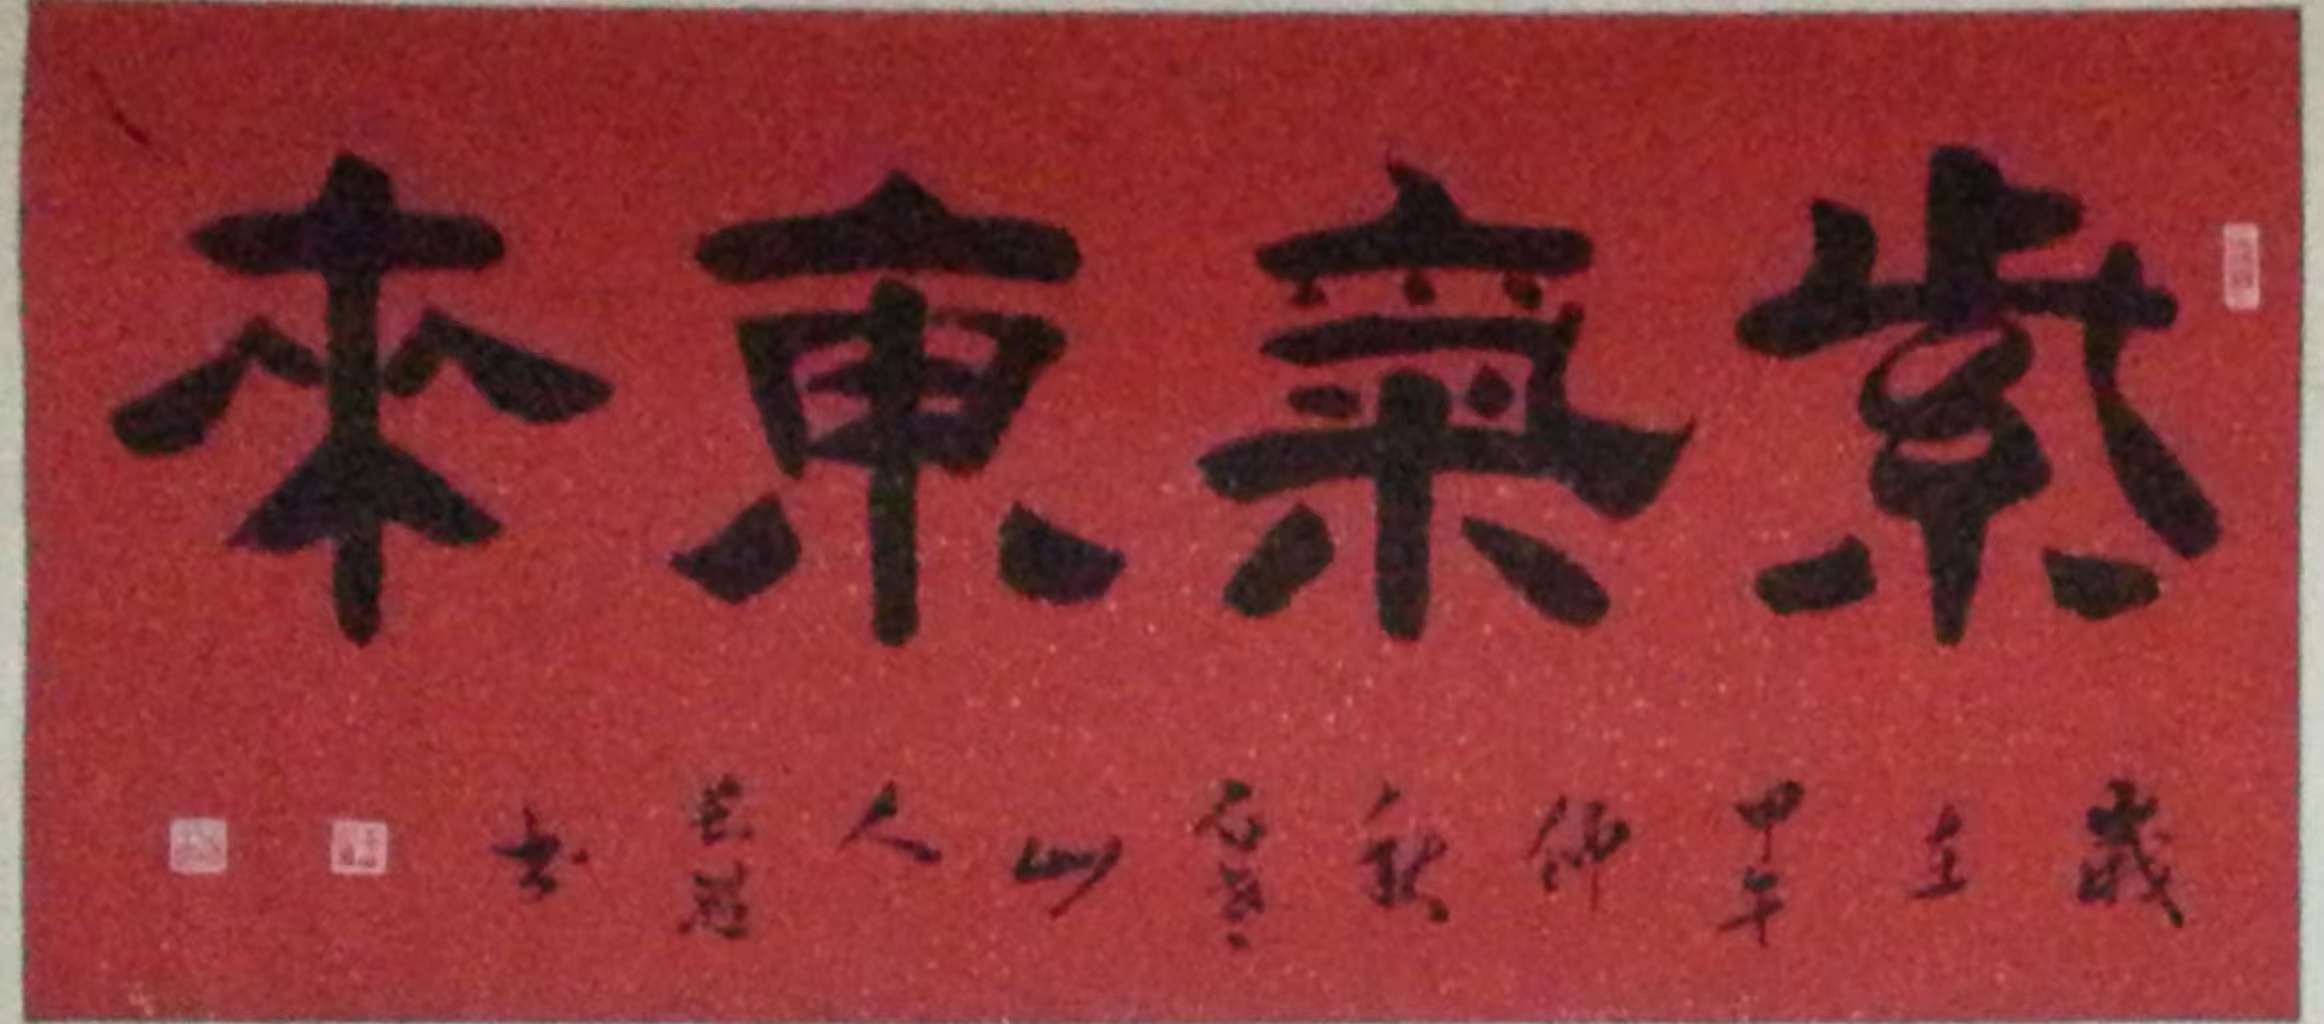 紫氣東來
歲在甲午仲秋石山人書